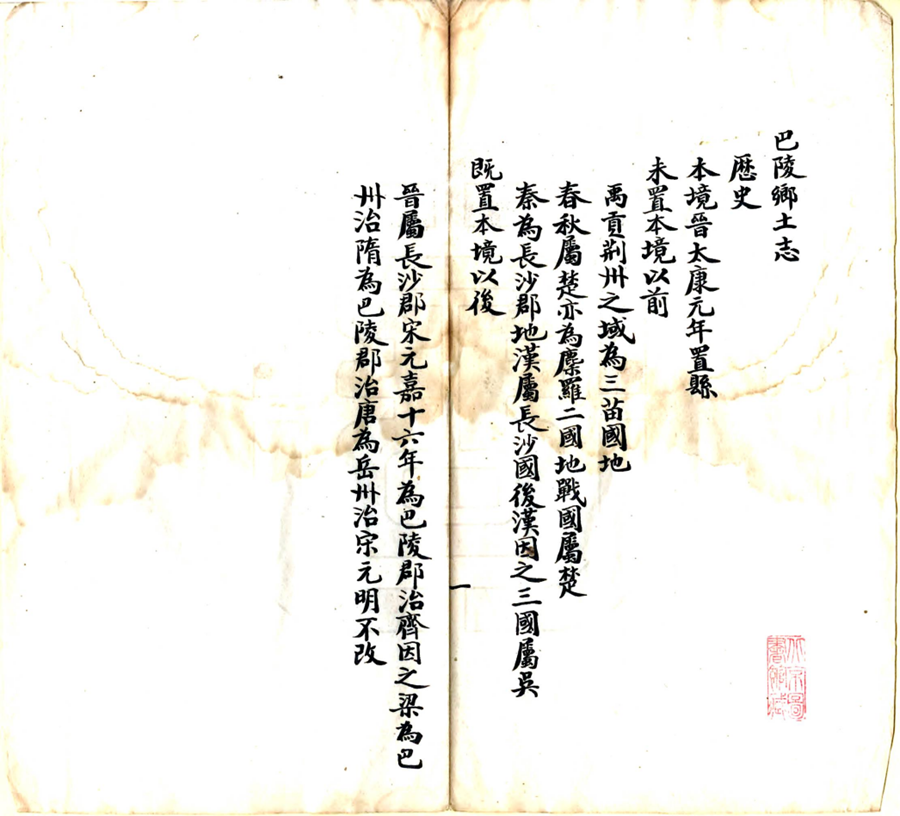 巴陵鄉土志
歷史
本境晉太康元年置縣
未置本境以前
禹貢荊州之域為三苗國地
春秋屬楚亦為麇羅二國地戰國屬楚
秦為長沙郡地漢屬長沙國後漢因之三國屬吳
既置本境以後
一
晉屬長沙郡宋元嘉十六年為巴陵郡治齊因之梁為巴
州治隋為巴陵郡治唐為岳州治宋元明不改
北京圖
書館藏